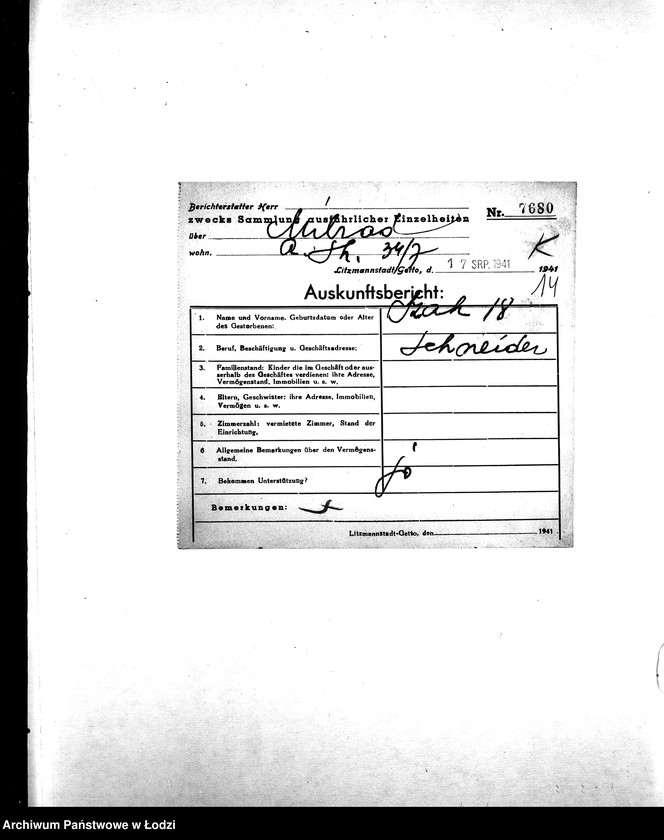 Berichterstatter Herr
zwecks Sammlung ausführlicher Einzelheiten
Nr. 7680
über
wohn. 34/7
K
Litzmannstadt-Getto, d. 17 SRP. 1941 1941
14
Auskunftsbericht:
1. Name und Vorname, Geburtsdatum oder Alter
des Gestorbenen: 18
2. Beruf, Beschäftigung u. Geschäftsadresse: Schneider
3. Familienstand: Kinder die im Geschäft oder aus-
serhalb des Geschäftes verdienen: ihre Adresse,
Vermögenstand, Immobilien u. s. w.
4. Eltern, Geschwister: ihre Adresse, Immobilien,
Vermögen u. s. w.
5. Zimmerzahl: vermietete Zimmer, Stand der
Einrichtung,
6 Allgemeine Bemerkungen über den Vermögens-
stand.
7. Bekommen Unterstützung?
Bemerkungen:
Litzmannstadt-Getto, den 1941
Archiwum Państwowe w Łodzi